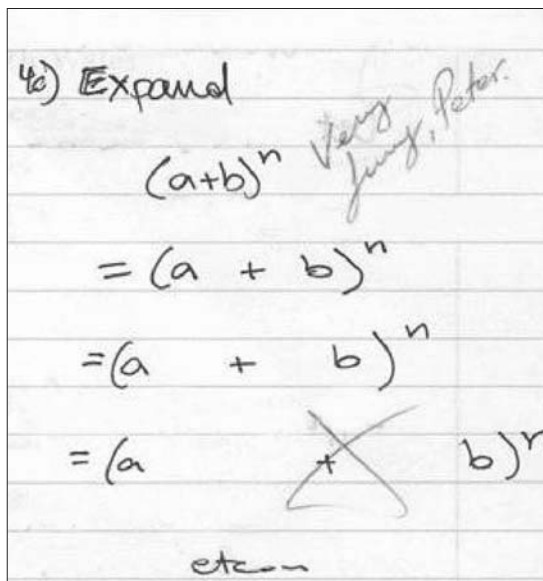 4c) Expand
Very
funny, Peter.
(a+b)ⁿ
= (a + b)ⁿ
= (a + b)ⁿ
= (a + b)ⁿ
etc...